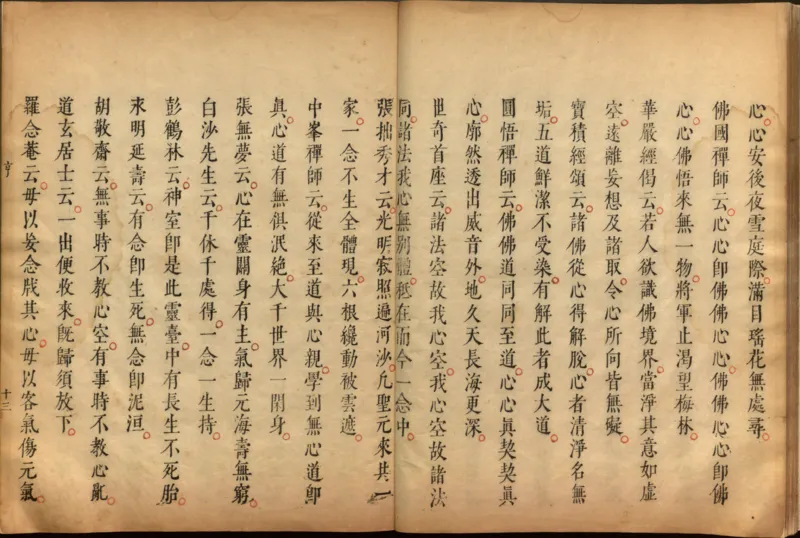 心心安後夜雪庭際滿目瑤花無處尋
佛國禪師云心心即佛佛心心佛佛心心即佛
心心佛悟來無一物將軍止渴望梅林
華嚴經偈云若人欲識佛境界當淨其意如虛
空遠離妄想及諸取令心所向皆無礙
寶積經頌云諸佛從心得解脫心者清淨名無
垢五道鮮潔不受染有解此者成大道
圓悟禪師云佛佛道同同至道心心真契契真
心廓然透出威音外地久天長海更深
世奇首座云諸法空故我心空我心空故諸法
同諸法我心無別體秪在而今一念中
張拙秀才云光明寂照遍河沙凡聖元來共一
家一念不生全體現六根纔動被雲遮
中峯禪師云從來至道與心親學到無心道即
真心道有無俱泯絶大千世界一閑身
張無夢云心在靈關身有主氣歸元海壽無窮
白沙先生云千休千處得一念一生持
彭鶴林云神室即是此靈臺中有長生不死胎
永明延壽云有念即生死無念即泥洹
胡敬齋云無事時不教心空有事時不教心亂
道玄居士云一出便收來既歸須放下
羅念菴云毋以妄念戕其心毋以客氣傷元氣
亨
十三